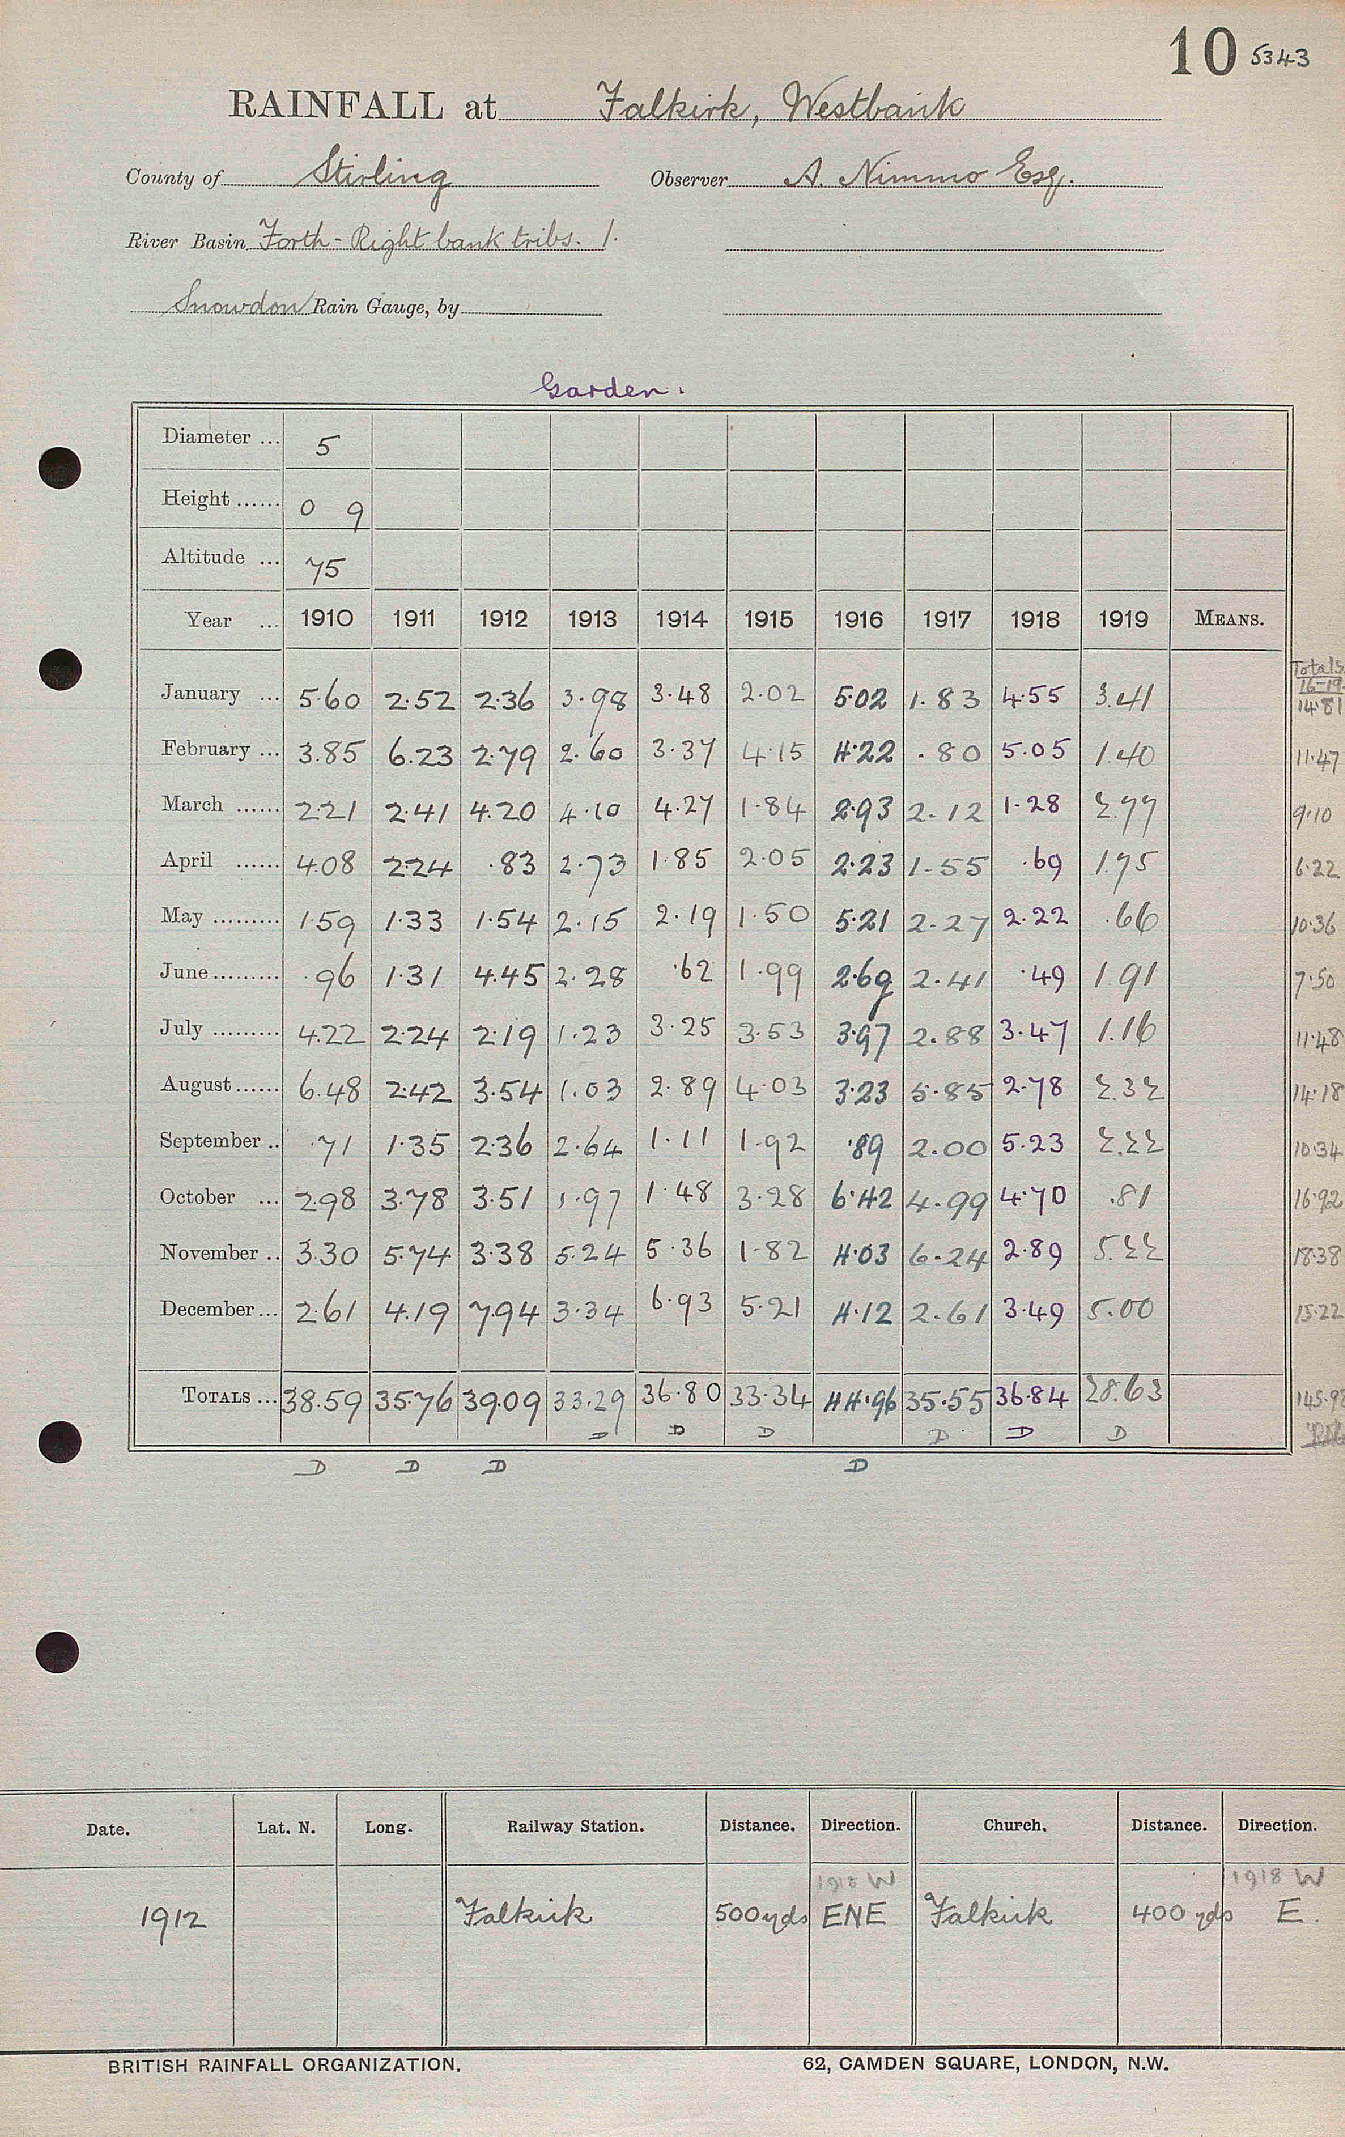 10 5343
RAINFALL at Falkirk, Westbank
County of Stirling Observer A. Nimmo Esq.
River Basin Forth - Right bank tribs. 1.
Snowdon Rain Gauge, by
Garden.
Diameter ... 5
Height ...... 0 9
Altitude ... 75
Year ... 1910 1911 1912 1913 1914 1915 1916 1917 1918 1919 MEANS. Totals 16-19
January ... 5.60 2.52 2.36 3.98 3.48 2.02 5.02 1.83 4.55 3.41 14.81
February ... 3.85 6.23 2.79 2.60 3.37 4.15 4.22 .80 5.05 1.40 11.47
March ...... 2.21 2.41 4.20 4.10 4.27 1.84 2.93 2.12 1.28 2.77 9.10
April ...... 4.08 2.24 .83 2.73 1.85 2.05 2.23 1.55 .69 1.75 6.22
May ......... 1.59 1.33 1.54 2.15 2.19 1.50 5.21 2.27 2.22 .66 10.36
June ......... .96 1.31 4.45 2.28 .62 1.99 2.69 2.41 .49 1.91 7.50
July ......... 4.22 2.24 2.19 1.23 3.25 3.53 3.97 2.88 3.47 1.16 11.48
August ...... 6.48 2.42 3.54 1.03 2.89 4.03 3.23 5.85 2.78 2.32 14.18
September .. .71 1.35 2.36 2.64 1.11 1.92 .89 2.00 5.23 2.22 10.34
October ... 2.98 3.78 3.51 1.97 1.48 3.28 6.42 4.99 4.70 .81 16.92
November .. 3.30 5.74 3.38 5.24 5.36 1.82 4.03 6.24 2.89 5.22 18.38
December ... 2.61 4.19 7.94 3.34 6.93 5.21 4.12 2.61 3.49 5.00 15.22
TOTALS ... 38.59 35.76 39.09 33.29 36.80 33.34 44.96 35.55 36.84 28.63 145.98
D D D D D D
D D D D
Date. Lat. N. Long. Railway Station. Distance. Direction. Church. Distance. Direction.
1918 W 1918 W
1912 Falkirk 500 yds ENE Falkirk 400 yds E.
BRITISH RAINFALL ORGANIZATION. 62, CAMDEN SQUARE, LONDON, N.W.